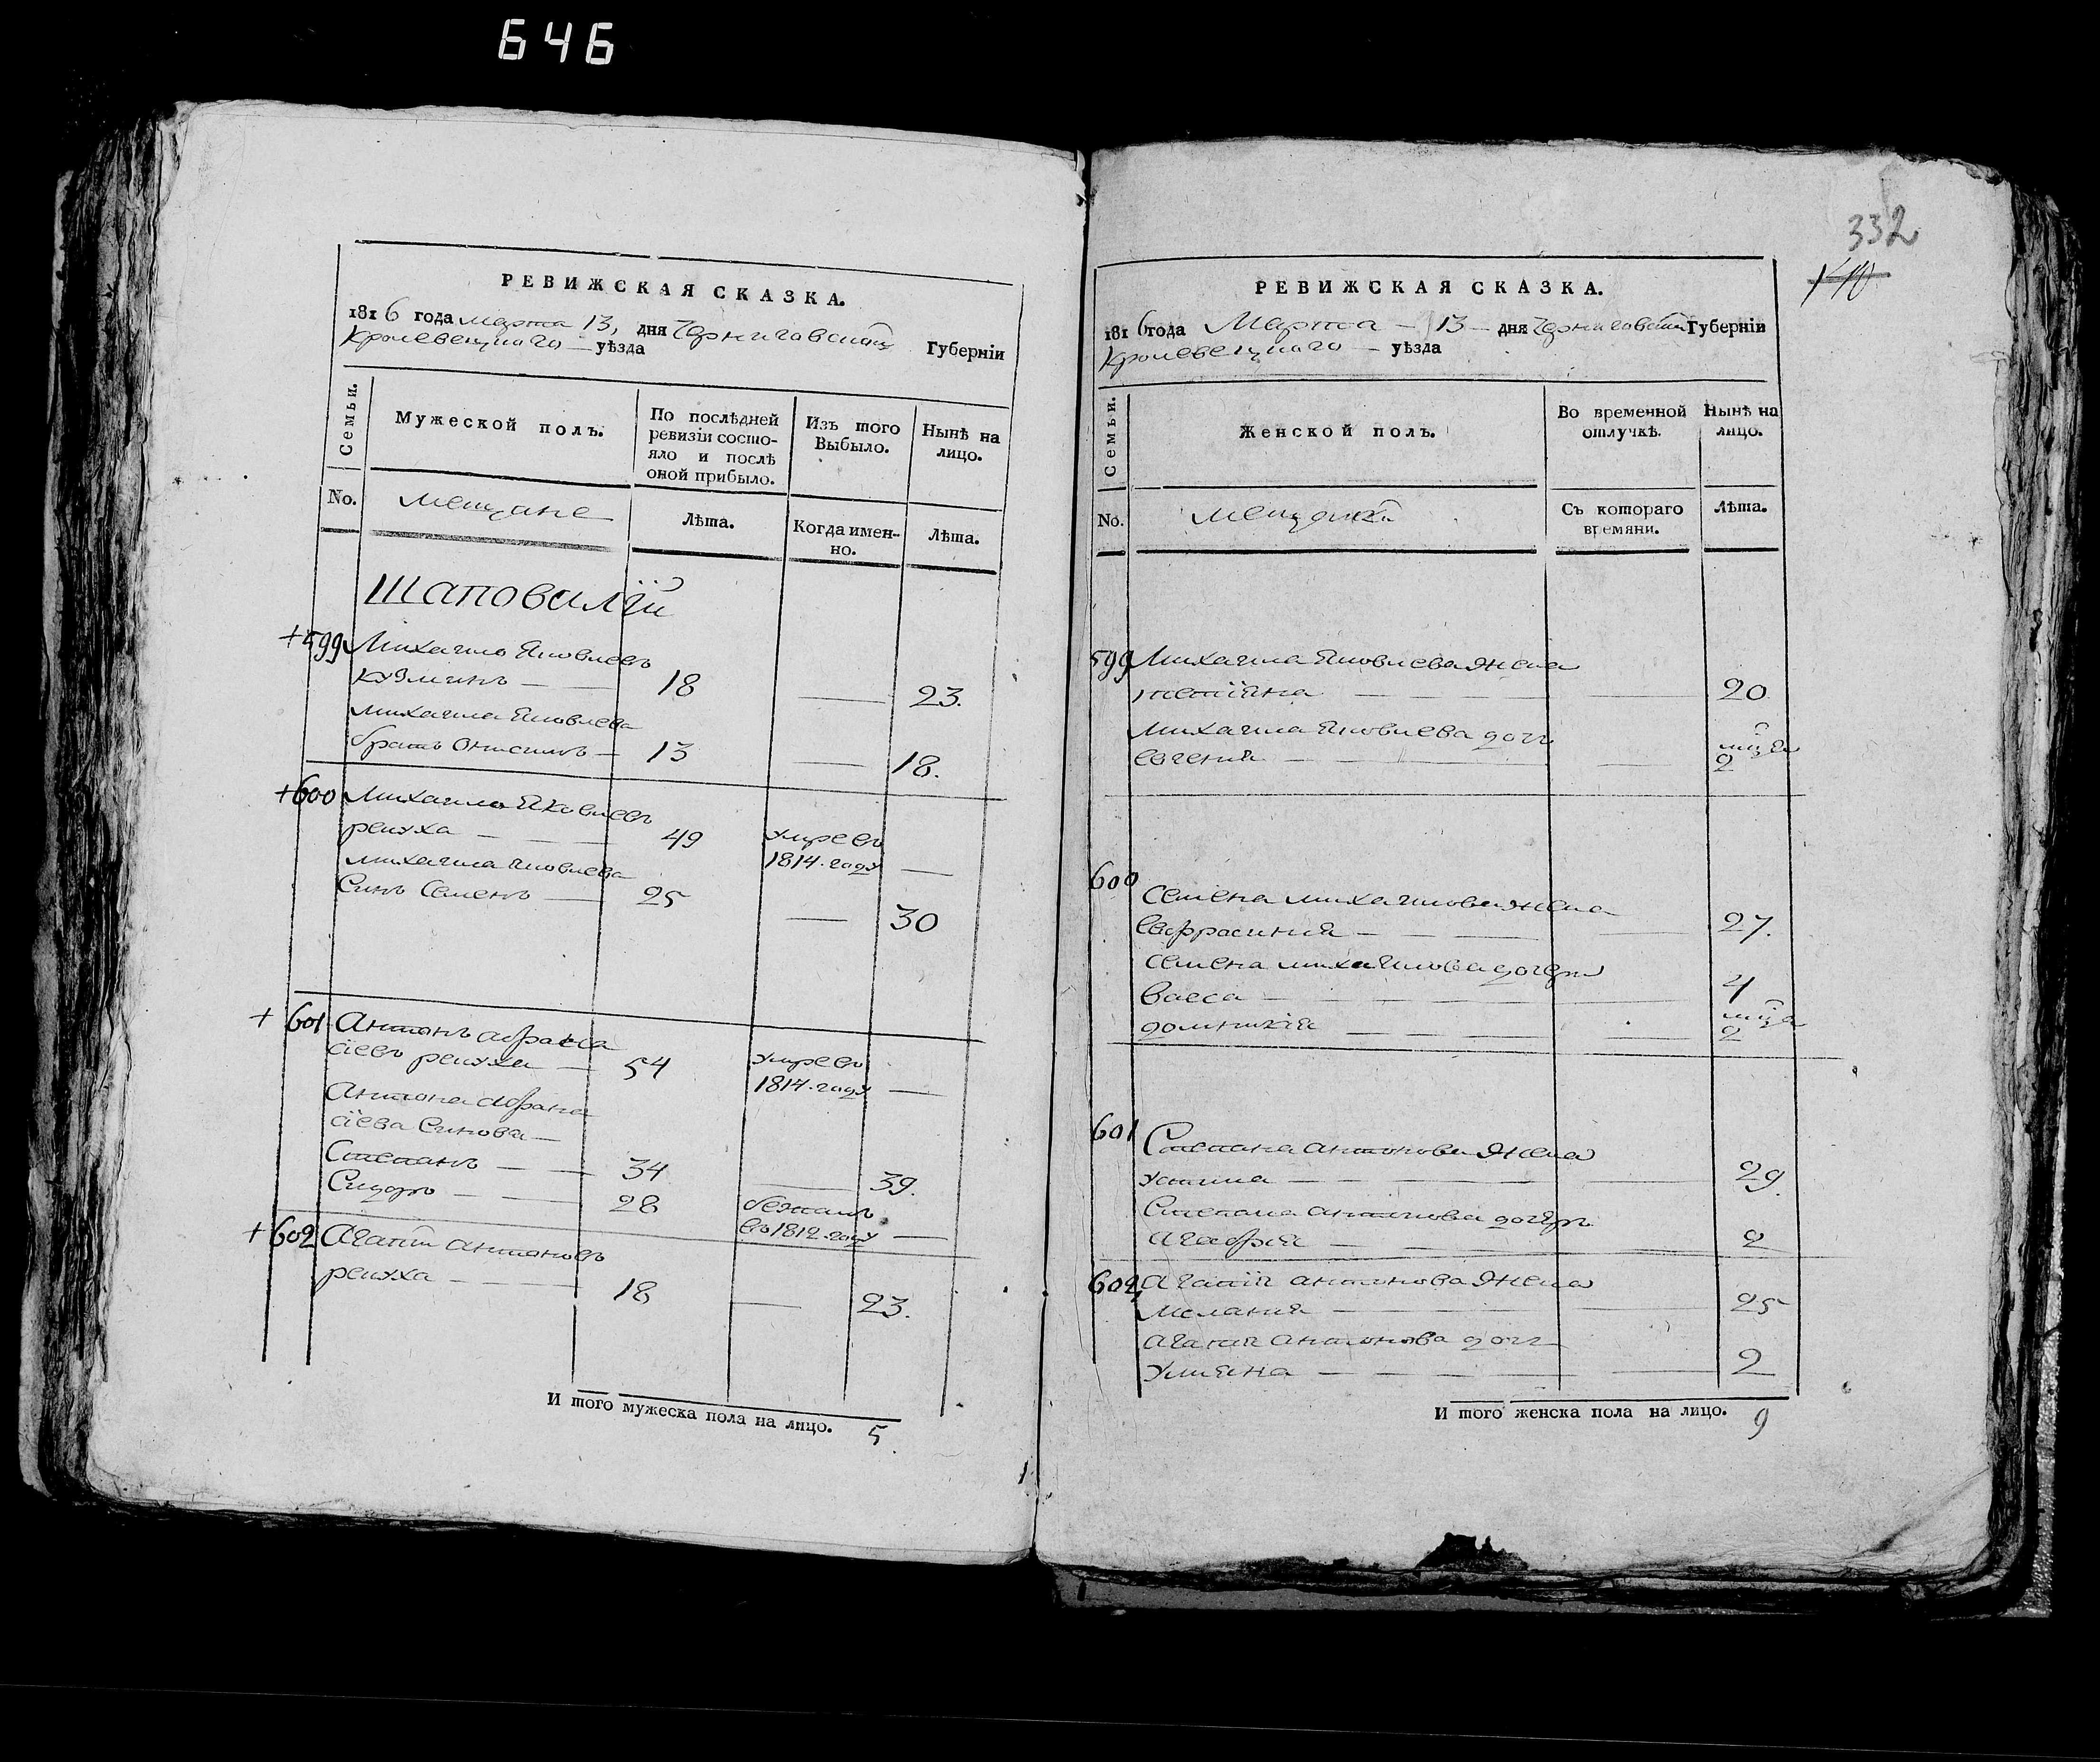 646
РЕВИЖСКАЯ СКАЗКА.
1816 года Марта 13, дня Черниговской Губерніи
Кролевецкаго — уѣзда
Семьи.
Мужеской полъ.
По послѣдней ревизіи состояло и послѣ оной прибыло.
Изъ того Выбыло.
Нынѣ на лицо.
No.
Мещане
Лѣта.
Когда именно.
Лѣта.
Шаповалій
+599 Михаило Яковлевъ
Кузминъ — — 18 — 23.
Михаила Яковлева
братъ Онисимъ — 13 — 18.
+600 Михаило Яковлевъ
репуха — — 49 умре въ
1814. году —
Михаила Яковлева
Синъ Семенъ — 25 — 30
+ 601 Антонъ афана
сіевъ репуха — 54 умре въ
1814. году —
Антона афана
сіева Синови —
Степанъ — — 34 — 39.
Сидоръ — — 28 бежалъ
въ 1812. году —
+ 602 Агапій антоновъ
репуха — — 18 — 23.
И того мужеска пола на лицо. 5.
332
РЕВИЖСКАЯ СКАЗКА.
1816 года Марта — 13 — дня Черниговской Губерніи
Кролевецкаго — уѣзда
Семьи.
Женской полъ.
Во временной отлучкѣ.
Нынѣ на лицо.
No.
Мещанки
Съ котораго времяни.
Лѣта.
599 Михаила Яковлева жена
— — — 20
Михаила Яковлева дочь
Евгенія — — — 2
600
Семена михаилова жена
Евфросинія — — — 27.
Семена михаилова дочери
Васса — — — 4
домникія — — — 2
601 Степана антонова жена
устина — — — 29.
Степана антонова дочерь
агафія — — — 2
602 Агапія антонова жена
Меланія — — — 25
агапія антонова дочь
улияна — — — 2
И того женска пола на лицо. 9